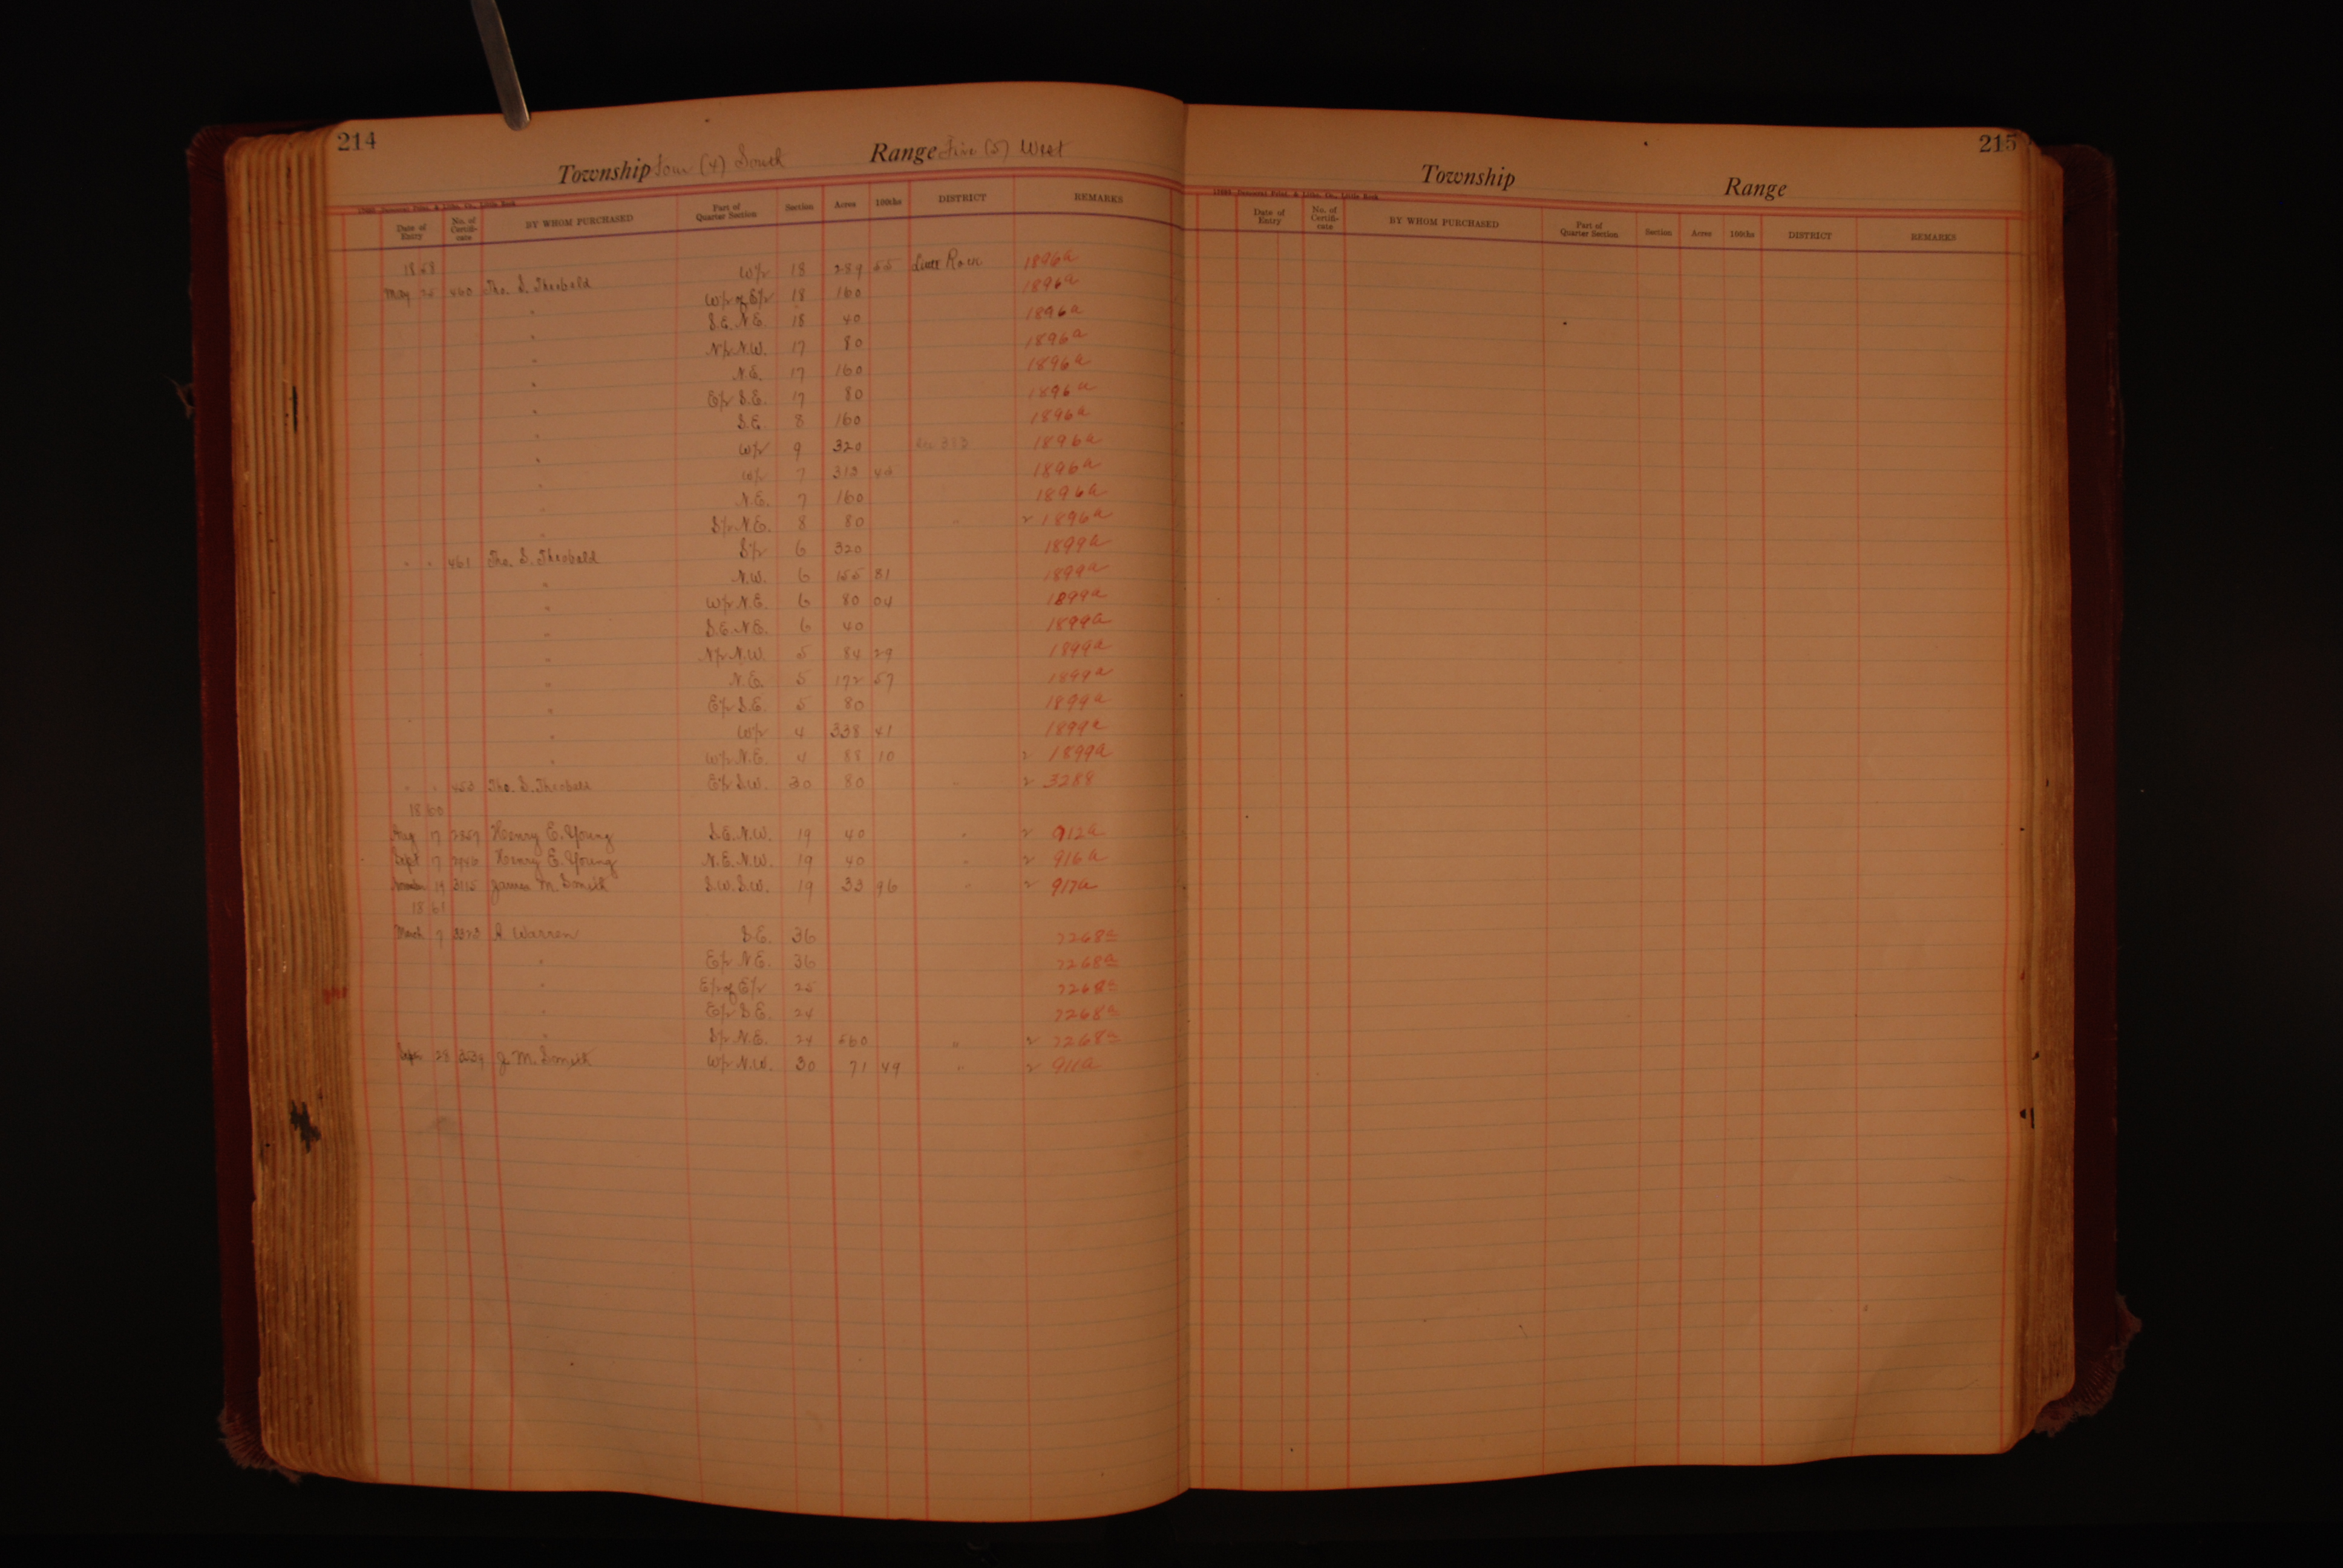 214
Township Four (4) South Range Five (5) West
Date of Entry No. of Certifi-cate BY WHOM PURCHASED Part of Quarter Section Section Acres 100ths DISTRICT REMARKS
18 58
W/2 18 289 55 Little Rock 1896a
May 25 460 Tho. S. Theobald W/2 of E/2 18 160 1896a
" S.E. N.E. 18 40 1896a
" N/2 N.W. 17 80 1896a
" N.E. 17 160 1896a
" E/2 S.E. 17 80 1896a
" S.E. 8 160 1896a
" W/2 9 320 1896a
" W/2 7 313 1896a
" N.E. 7 160 1896a
" S/2 N.E. 8 80 " 1896a
" " 461 Tho. S. Theobald S/2 6 320 1899a
" N.W. 6 155 81 1899a
" W/2 N.E. 6 80 04 1899a
" S.E. N.E. 6 40 1899a
" N/2 N.W. 5 84 29 1899a
" N.E. 5 172 57 1899a
" E/2 S.E. 5 80 1899a
" W/2 4 338 41 1899a
" W/2 N.E. 4 88 10 1899a
" " Tho. S. Theobald E/2 S.W. 30 80 " 3288
18 60
Aug 17 Henry E. Young S.E. N.W. 19 40 " 912a
Sept 17 Henry E. Young N.E. N.W. 19 40 " 916a
November 19 3115 James M. Smith S.W. S.W. 19 33 96 " 917a
18 61
March 7 A Warren S.E. 36 7268a
" E/2 N.E. 36 7268a
" E/2 of E/2 25 7268a
" E/2 S.E. 24 7268a
" S/2 N.E. 24 560 " 7268a
28 J M. Smith W/2 N.W. 30 71 49 " 911a
215
Township Range
Date of Entry No. of Certifi-cate BY WHOM PURCHASED Part of Quarter Section Section Acres 100ths DISTRICT REMARKS